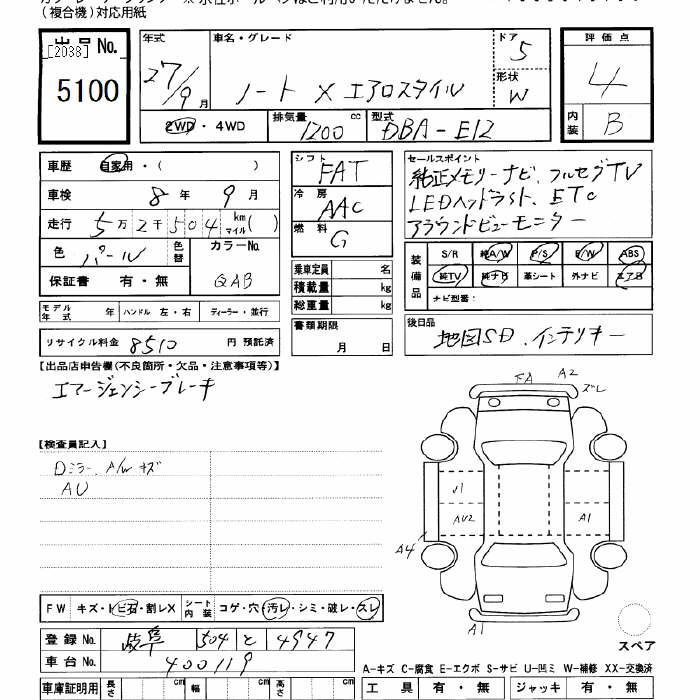 (複合機)対応用紙
出品No. [2038]
5100
年式 27/9月
車名・グレード ノート X エアロスタイル
ドア 5
形状 W
2WD・4WD
排気量 1200 cc
型式 DBA-E12
評価点 4
内装 B
車歴 自家用・( )
車検 8年 9月
走行 5万2千504 km マイル( )
色 パール 色替
カラーNo. QAB
保証書 有・無
モデル年式 年 ハンドル 左・右 ディーラー・並行
リサイクル料金 8510 円 預託済
シフト FAT
冷房 AAC
燃料 G
乗車定員 名
積載量 kg
総重量 kg
書類期限 月 日
セールスポイント
純正メモリーナビ、フルセグTV
LEDヘッドライト、ETC
アラウンドビューモニター
装備品 S/R 純A/W P/S P/W ABS
純TV 純ナビ 革シート 外ナビ エアB
ナビ型番:
後日品 地図SD、インテリキー
【出品店申告欄(不良箇所・欠品・注意事項等)】
エマージェンシーブレーキ
【検査員記入】
Dミラー、A/W キズ
AU
FA A2 ズレ
U1
AU2
A1
A4
A1
スペア
FW キズ・トビ石・割レX シート内装 コゲ・穴・汚レ・シミ・破レ・スレ
登録No. 岐阜 504 と 4947
車台No. 400119
A-キズ C-腐食 E-エクボ S-サビ U-凹ミ W-補修 XX-交換済
車庫証明用 長さ cm 幅 cm 高さ cm
工具 有・無 ジャッキ 有・無